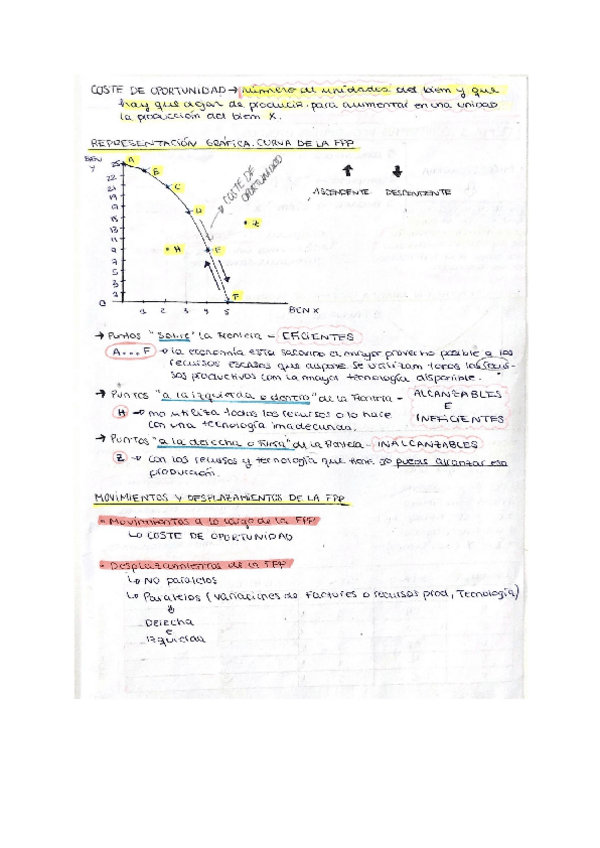 COSTE DE OPORTUNIDAD → número de unidades del bien y que
hay que dejar de producir para aumentar en una unidad
la producción del bien X.
REPRESENTACIÓN GRÁFICA. CURVA DE LA FPP
BIEN
Y
25
A
B
22
C
21
19
D
COSTE DE
OPORTUNIDAD
Z
H
9
7
5
3
F
0
1 2 3 4 5
BIEN X
ASCENDENTE DESCENDENTE
→ Puntos "sobre" la frontera - EFICIENTES
A...F → la economía está sacando el mayor provecho posible a los
recursos escasos que dispone se utilizan todos los recur-
sos productivos con la mayor tecnología disponible.
→ Puntos "a la izquierda o dentro" de la frontera - ALCANZABLES
E
INEFICIENTES
H → no utiliza todos los recursos o lo hace
con una tecnología inadecuada.
→ Puntos "a la derecha o fuera" de la frontera - INALCANZABLES
Z → con los recursos y tecnología que tiene no puede alcanzar esa
producción.
MOVIMIENTOS Y DESPLAZAMIENTOS DE LA FPP
- Movimientos a lo largo de la FPP
↳ COSTE DE OPORTUNIDAD
- Desplazamientos de la FPP
↳ NO paralelos
↳ Paralelos (variaciones de factores o recursos prod, Tecnología)
↓
Derecha
e
Izquierda